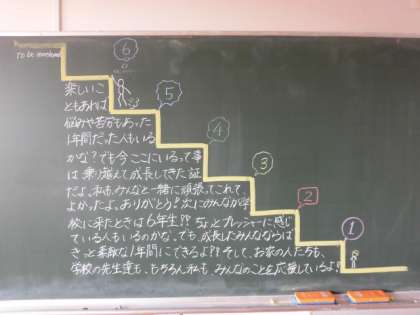 To be continued
6
5
4
3
2
1
楽しいこ
ともあれば
悩みや苦労もあった
1年間だった人もいる
かな？でも今ここにいるって事
は乗り越えて成長してきた証
だよ。私もみんなと一緒に頑張ってこれて、
よかったよ。ありがとう！次にみんなが学
校に来たときは6年生！？ちょっとプレッシャーに感じ
ている人もいるのかな。でも、成長したみんなならば
きっと素敵な1年間にできるよ！？そして、お家の人たちも、
学校の先生達も、もちろん私も、みんなのことを応援しているよ！